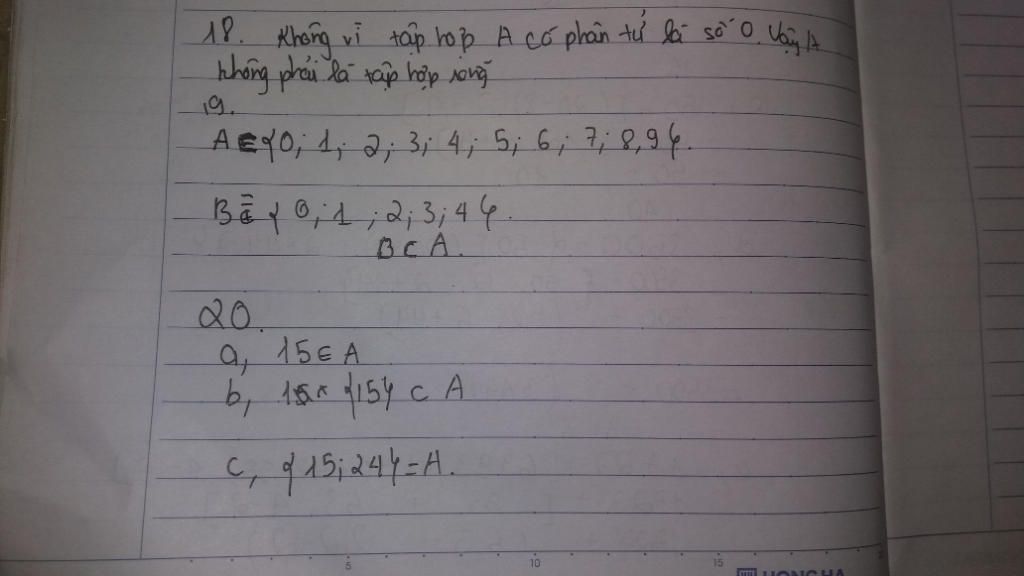 18. Không vì tập hợp A có phân tử là số 0. Vậy A
không phải là tập hợp rỗng
19.
A = {0; 1; 2; 3; 4; 5; 6; 7; 8,9}.
B = {0; 1; 2; 3; 4}.
B ⊂ A.
20.
a, 15 ∈ A
b, {15} ⊂ A
c, {15; 24} = A.
5 10 15
HONG HA